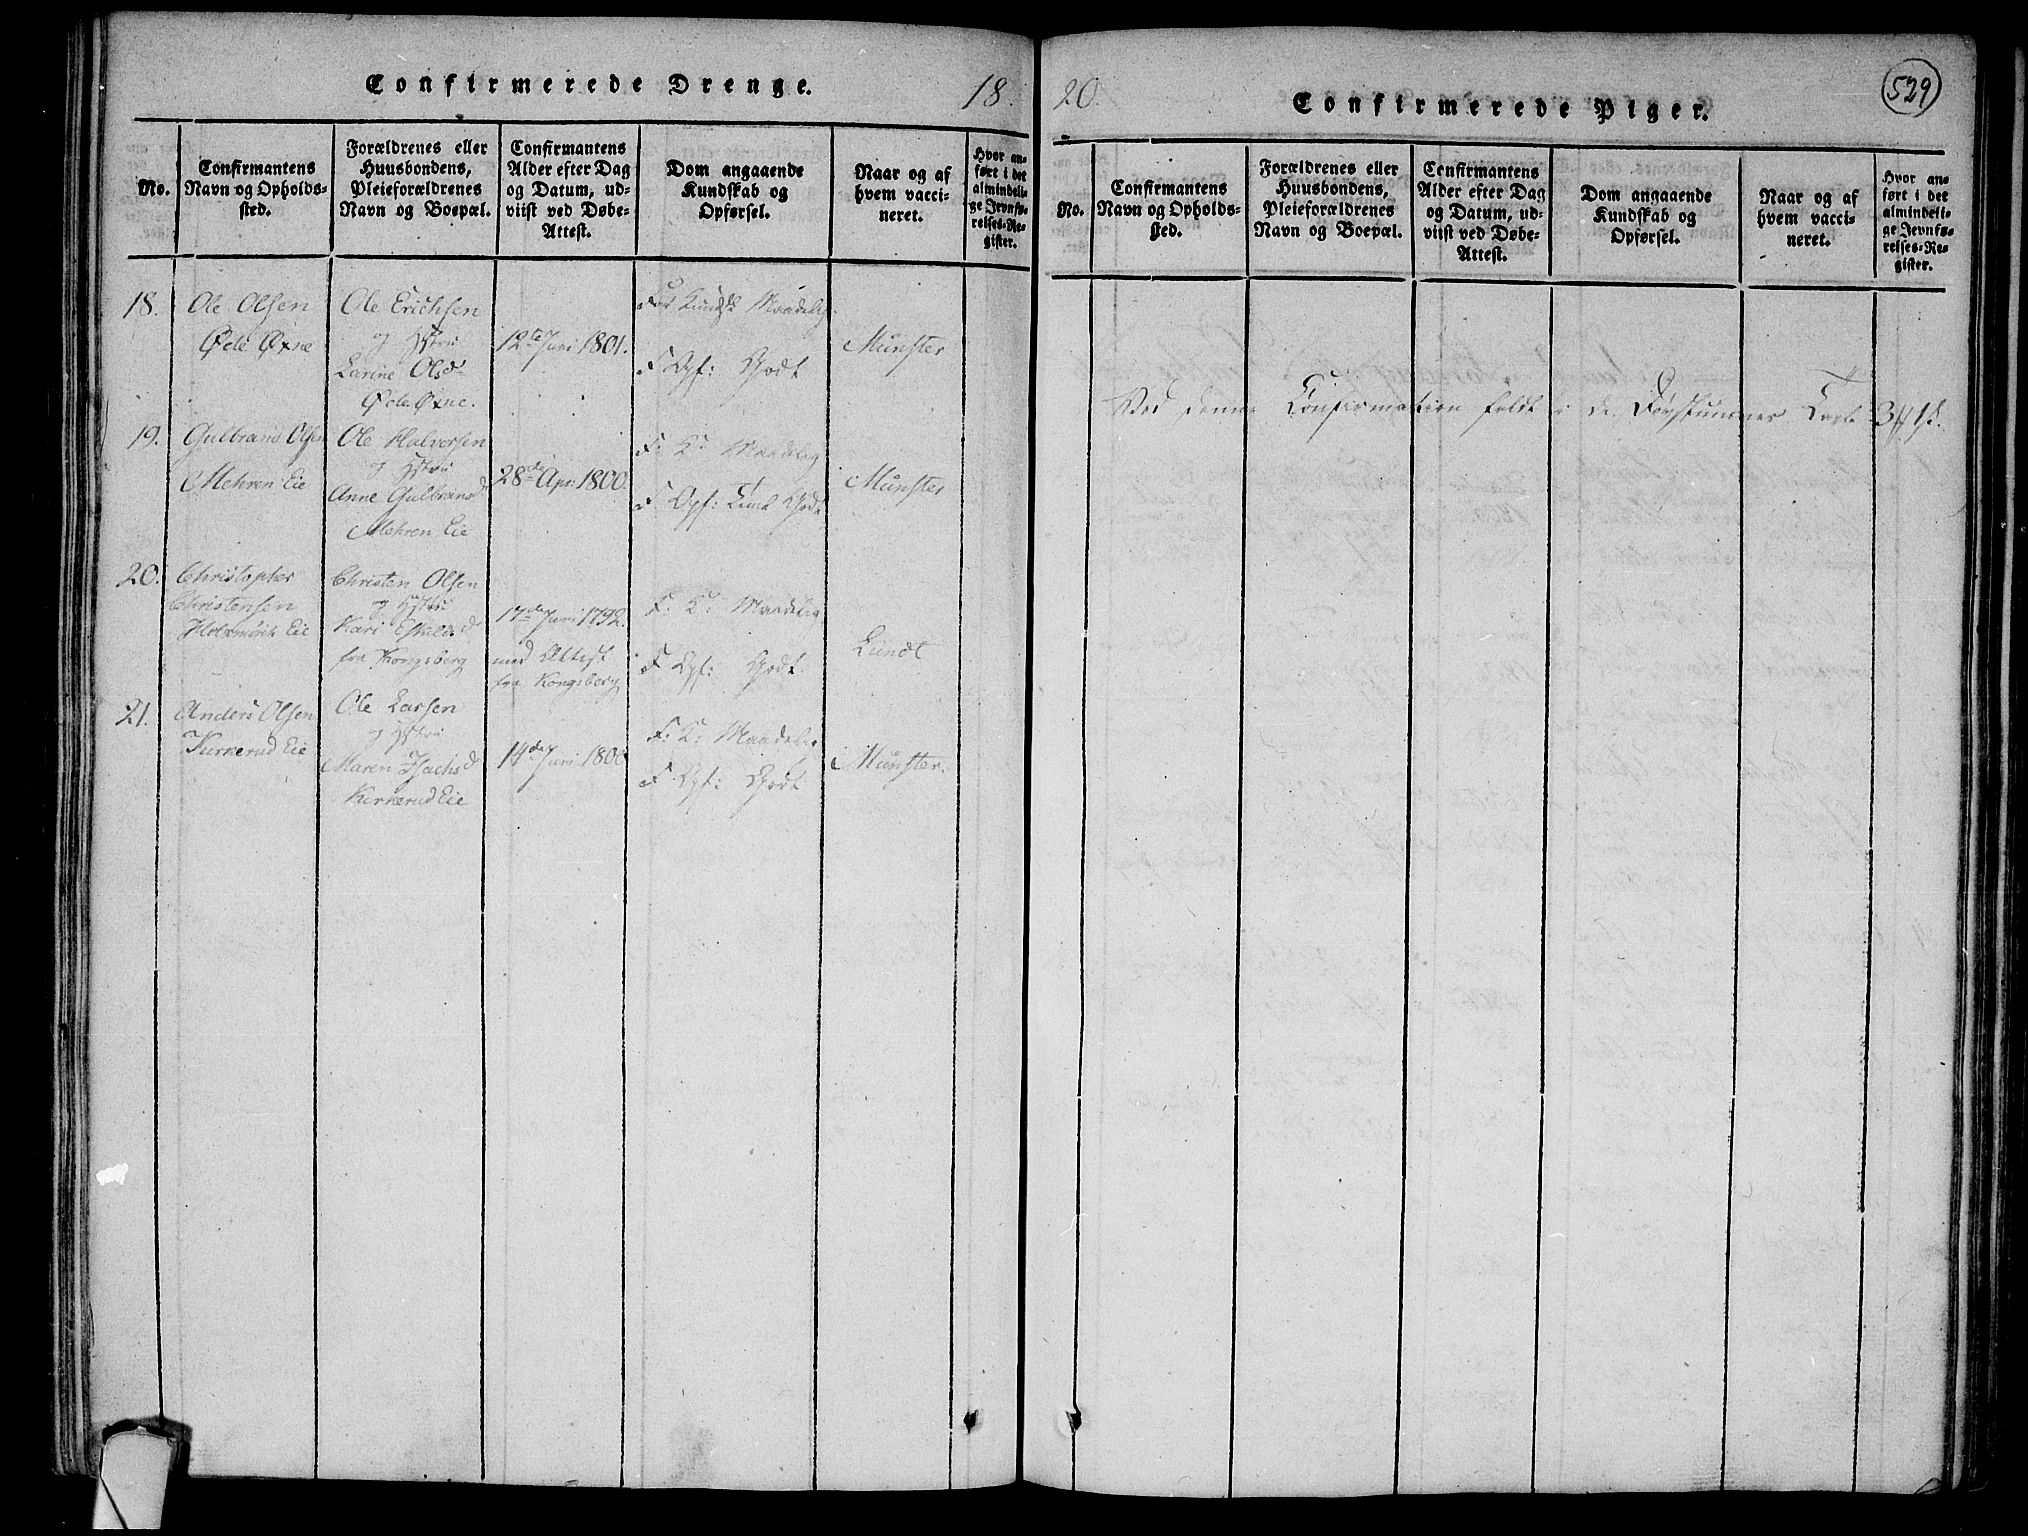 Confirmerede Drenge.
18
No.
Confirmantens
Navn og Opholds-
sted.
Forældrenes eller
Huusbondens,
Pleieforældrenes
Navn og Boepæl.
Confirmantens
Alder efter Dag
og Datum, ud-
viist ved Døbe-
Attest.
Dom angaaende
Kundskab og
Opførsel.
Naar og af
hvem vacci-
neret.
Hvor an-
ført i det
almindeli-
ge Jevnfø-
relses-Re-
gister.
18.
Ole Olsen
Øde Øxne
Ole Erichsen
og Hstru
Larine Olsd
Øde Øxne.
12te Juni 1801.
For Kundsk Maadelig.
F Opf: Godt
Münster
19.
Gulbrand Olsen
Mehren Eie
Ole Halvorsen
og Hstru
Anne Gulbransd
Mehren Eie
28de Apr: 1800.
F: K: Maadelig
F Opf: Godt
Münster
20.
Christopher
Christensen
Eie
Christen Olsen
og Hstru
Kari Eskildsd
fra Kongsberg
17de Juni 1792.
med Attest
fra Kongsberg
F: K: Maadelig
F Opf: Godt
Lundt
21.
Anders Olsen
Kirkerud Eie
Ole Larsen
og Hstru
Maren Isachsd
Kirkerud Eie
14de Juni 1800
F: K: Maadelig
F Opf: Godt
Münster.
20.
Confirmerede Piger.
529
No.
Confirmantens
Navn og Opholds-
sted.
Forældrenes eller
Huusbondens,
Pleieforældrenes
Navn og Boepæl.
Confirmantens
Alder efter Dag
og Datum, ud-
viist ved Døbe-
Attest.
Dom angaaende
Kundskab og
Opførsel.
Naar og af
hvem vacci-
neret.
Hvor an-
ført i det
almindeli-
ge Jevnfø-
relses-Re-
gister.
Ved denne Confirmation faldt i de Døvstummes Tavle